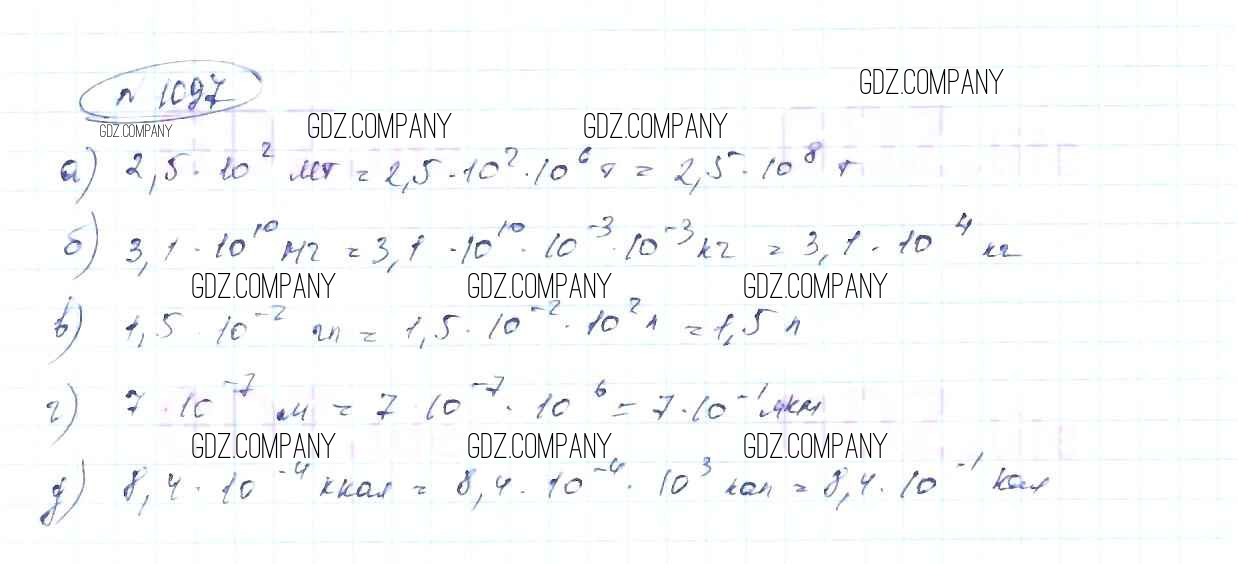 № 1097
GDZ.COMPANY
GDZ.COMPANY GDZ.COMPANY GDZ.COMPANY
а) 2,5 · 10² Мт = 2,5 · 10² · 10⁶ т = 2,5 · 10⁸ т
б) 3,1 · 10¹⁰ мг = 3,1 · 10¹⁰ · 10⁻³ · 10⁻³ кг = 3,1 · 10⁴ кг
GDZ.COMPANY GDZ.COMPANY GDZ.COMPANY
в) 1,5 · 10⁻² гл = 1,5 · 10⁻² · 10² л = 1,5 л
г) 7 · 10⁻⁷ м = 7 · 10⁻⁷ · 10⁶ = 7 · 10⁻¹ мкм
GDZ.COMPANY GDZ.COMPANY GDZ.COMPANY
д) 8,4 · 10⁻⁴ ккал = 8,4 · 10⁻⁴ · 10³ кал = 8,4 · 10⁻¹ кал